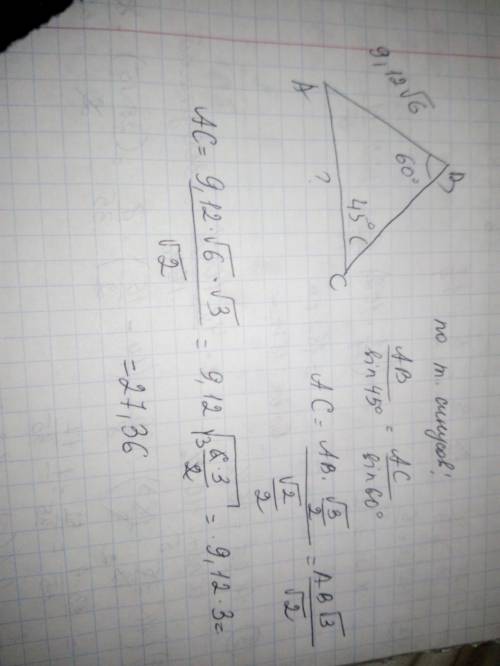 B
9,12√6
60°
45°
A
?
C
по т. синусов:
AB / sin 45° = AC / sin 60°
AC = AB · √3/2 / √2/2 = AB√3 / √2
AC = 9,12 · √6 · √3 / √2 = 9,12 √(6 · 3 / 2) = 9,12 · 3 =
= 27,36